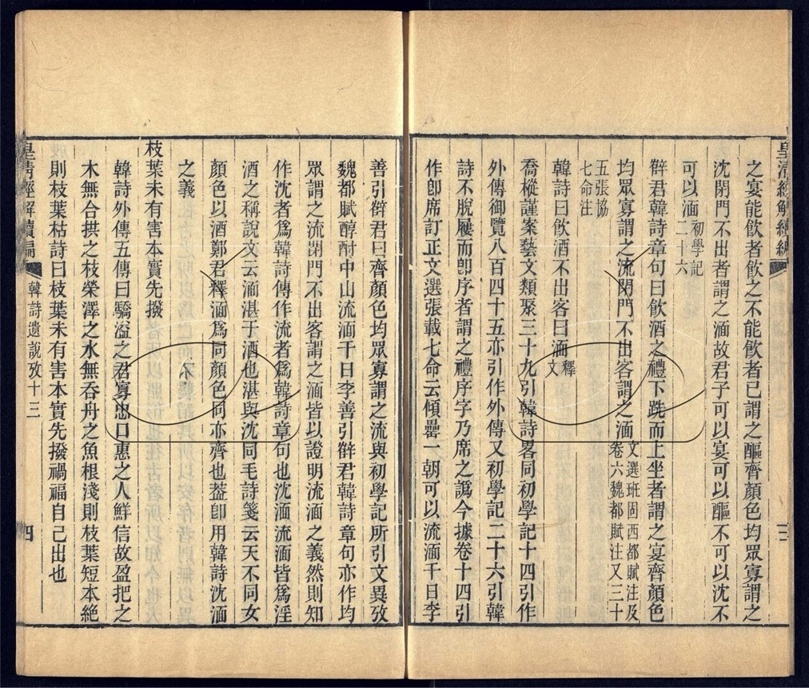 皇清經解續編
之宴能飲者飲之不能飲者已謂之醧齊顏色均眾寡謂之
沈閉門不出者謂之湎故君子可以宴可以醧不可以沈不
可以湎初學記二十六
薛君韓詩章句曰飲酒之禮下跣而上坐者謂之宴齊顏色
均眾寡謂之流閉門不出客謂之湎文選班固西都賦注及卷六魏都賦注又三十
五張協七命注
韓詩曰飲酒不出客曰湎釋文
喬樅謹案藝文類聚三十九引韓詩畧同初學記十四引作
外傳御覽八百四十五亦引作外傳又初學記二十六引韓
詩不脫屨而卽序者謂之禮序字乃席之譌今據卷十四引
作卽席訂正文選張載七命云傾罍一朝可以流湎千日李
善引薛君曰齊顏色均眾寡謂之流與初學記所引文異攷
魏都賦醇酎中山流湎千日李善引薛君韓詩章句亦作均
眾謂之流閉門不出客謂之湎皆以證明流湎之義然則知
作沈者爲韓詩傳作流者爲韓詩章句也沈湎流湎皆爲淫
酒之稱說文云湎湛于酒也湛與沈同毛詩箋云天不同女
顏色以酒鄭君釋湎爲同顏色同亦齊也葢卽用韓詩沈湎
之義
枝葉未有害本實先撥
韓詩外傳五傳曰驕溢之君寡忠口惠之人鮮信故盈把之
木無合拱之枝榮澤之水無吞舟之魚根淺則枝葉短本絕
則枝葉枯詩曰枝葉未有害本實先撥禍福自己出也
皇清經解續編
韓詩遺說攷十三
四